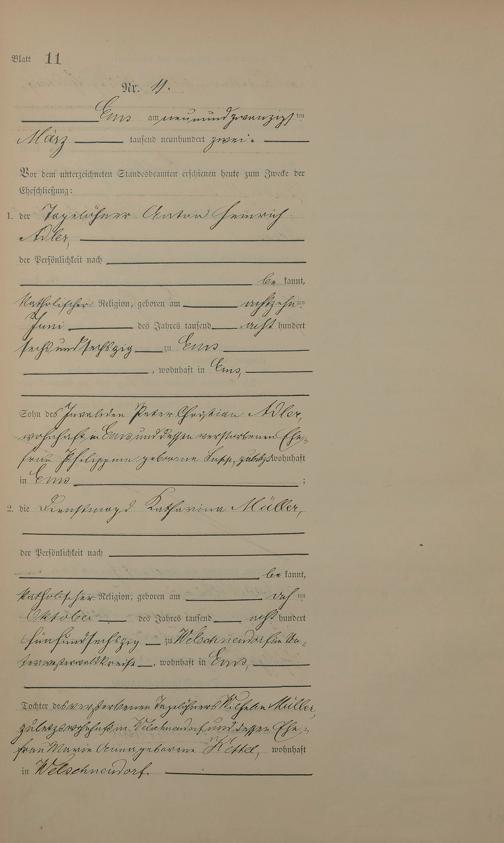 Blatt 11
Nr. 11.
Ems am neunundzwanzigsten
März tausend neunhundert zwei.
Vor dem unterzeichneten Standesbeamten erschienen heute zum Zwecke der
Eheschließung:
1. der Tagelöhner Anton Heinrich
Adler,
der Persönlichkeit nach
be kannt,
katholischer Religion, geboren am achtzehnten
Juni des Jahres tausend acht hundert
sechsundsechszig zu Ems
, wohnhaft in Ems,
Sohn des Invaliden Peter Christian Adler,
wohnhaft in Ems und dessen verstorbenen Ehe-
frau Philippine geborene zuletzt wohnhaft
in Ems ;
2. die Dienstmagd Katharina Müller,
der Persönlichkeit nach
be kannt,
katholischer Religion, geboren am ten
Oktober des Jahres tausend acht hundert
fünfundsechszig zu Welschneudorf im Un-
terwesterwaldkreise, wohnhaft in Ems,
Tochter des verstorbenen Tagelöhners Wilhelm Müller,
zuletzt wohnhaft in Welschneudorf und dessen Ehe-
frau Marie Anna geborene wohnhaft
in Welschneudorf.